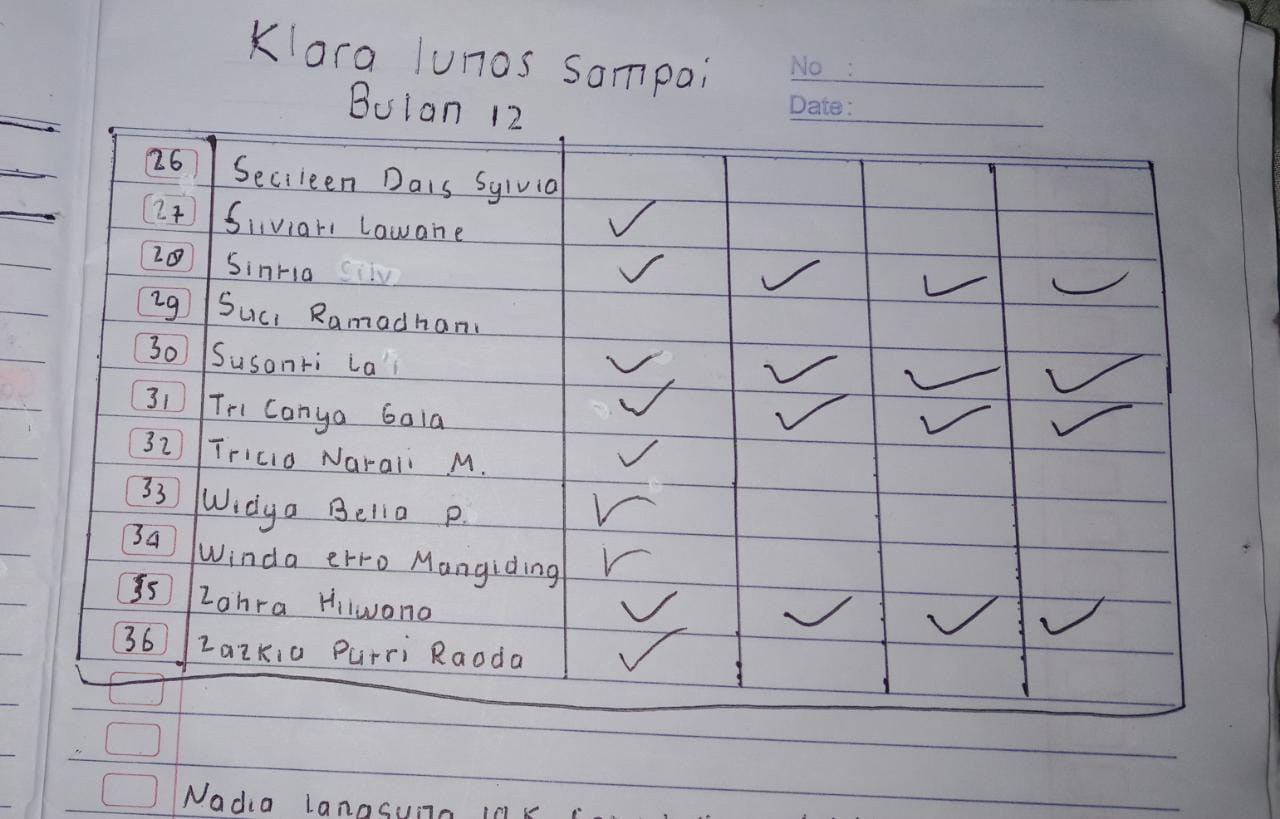 Klara lunas sampai
Bulan 12
No :
Date :
26 Secileen Dais Sylvia
27 Silviati Lawane ✓
28 Sintia Silv ✓ ✓ ✓ ✓
29 Suci Ramadhani
30 Susanti La'i ✓ ✓ ✓ ✓
31 Tri Canya Gala ✓ ✓ ✓ ✓
32 Tricia Natali M. ✓
33 Widya Bella P. ✓
34 Winda erro Mangiding ✓
35 Zahra Hilwana ✓ ✓ ✓ ✓
36 Zazkia Putri Raoda ✓
Nadia langsung